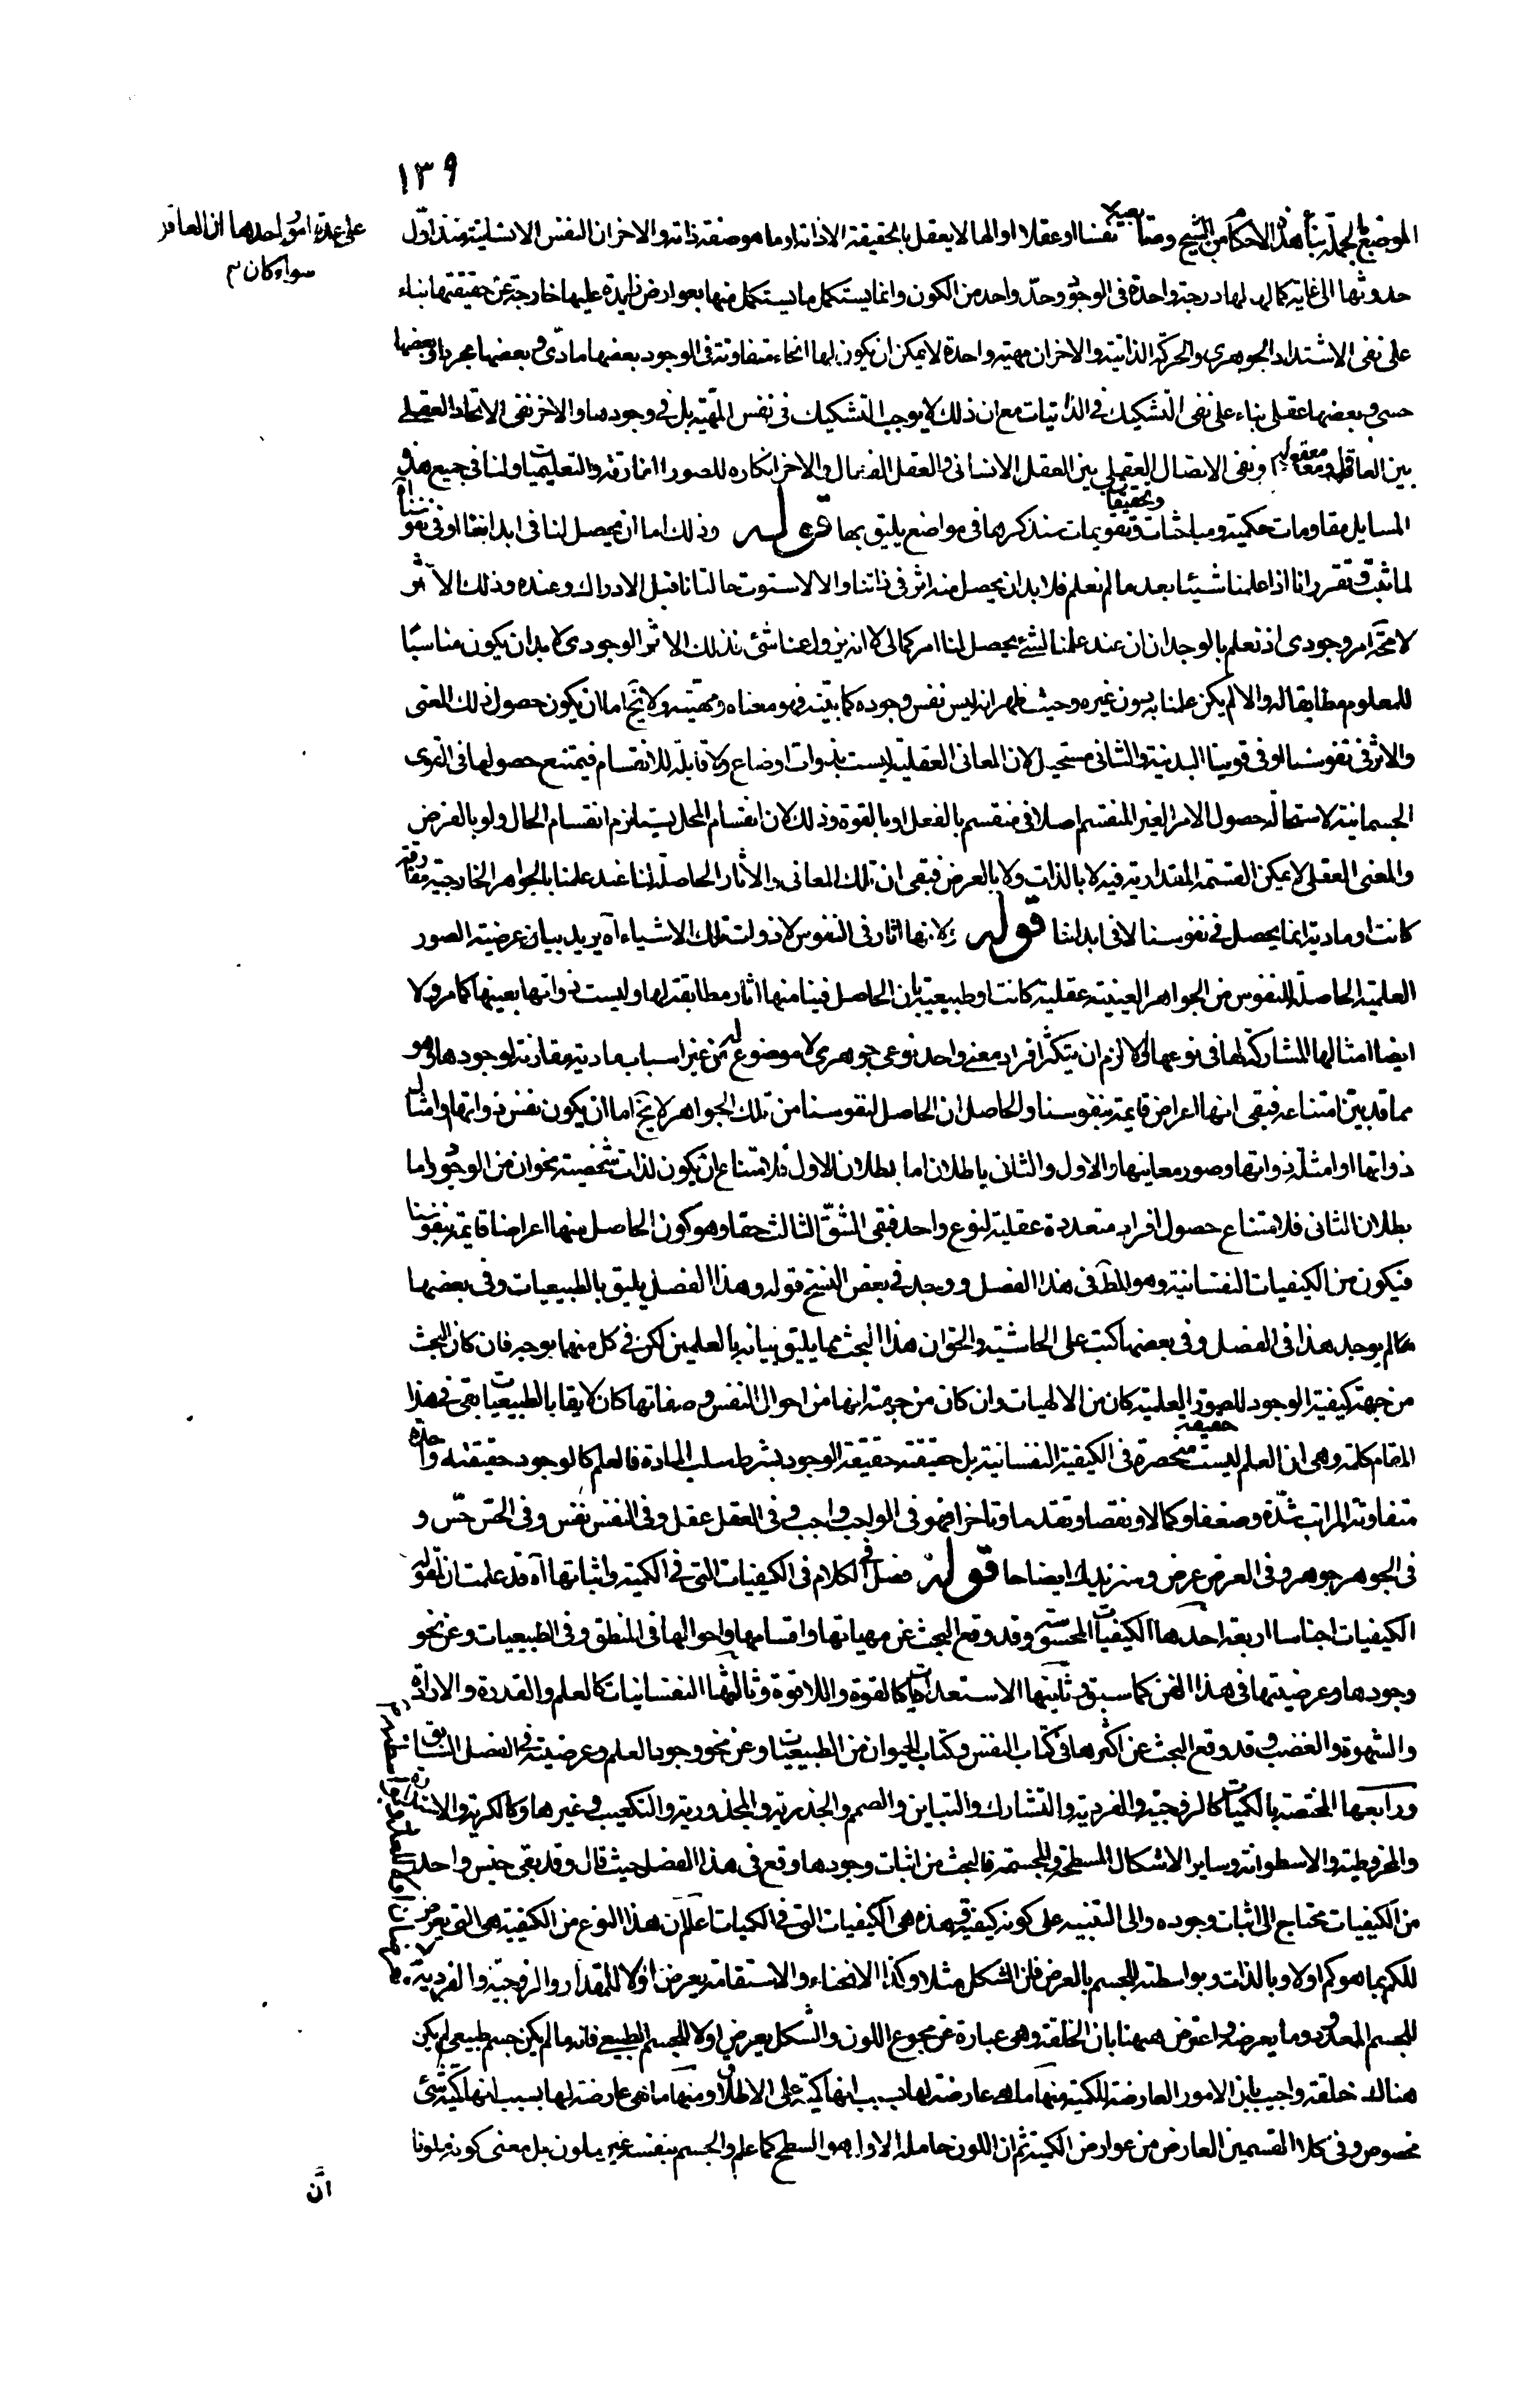 ١٣٩
الموضع بالجملة بناء هذه الاحكام من الشيخ ومتابعيه نفسا او عقلا او الها لا يعقل بالحقيقة الا ذاته او ما هو صفة ذاته والاخر ان النفس الانسانية منذ اول
على عدة امور احدها ان العاقل
سواء كان
حدوثها الى غاية كمالها لها درجة واحدة فى الوجود وحد واحد من الكون وانما يستكمل ما يستكمل منها بعوارض زايدة عليها خارجة عن حقيقتها بناء
على نفى الاشتداد الجوهرى والحركة الذاتية والاخر ان مهية واحدة لا يمكن ان يكون لها انحاء متفاوتة فى الوجود بعضها مادى وبعضها مجرد او بعضها
حسى وبعضها عقلى بناء على نفى التشكيك فى الذاتيات مع ان ذلك لا يوجب التشكيك فى نفس المهية بل فى وجودها والاخر نفى الاتحاد العقلى
بين العاقل ومعقوله ونفى الاتصال العقلى بين العقل الانسانى والعقل الفعال والاخر انكاره للصور المفارقة والتعليميات ولنا فى جميع هذه
المسايل مقاومات حكمية ومباحثات وتحقيقات وتقويمات سنذكرها فى مواضع يليق بها قوله وذلك اما ان يحصل لنا فى ابداننا او فى نفوسنا آه
لما ثبت وتقرر انا اذا علمنا شيئا بعد ما لم نعلم فلا بد ان يحصل منه اثر فى ذاتنا والا لاستوت حالتانا قبل الادراك وعنده وذلك الاثر
لا محة امر وجودى اذ نعلم بالوجدان ان عند علمنا لشئ يحصل لنا امر كمالى لا انه يزول عنا شئ فذلك الاثر الوجودى لا بد ان يكون مناسبا
للمعلوم مطابقا له والا لم يكن علمنا به دون غيره وحيث ظهر انه ليس نفس وجوده كما بينه فهو معناه ومهيته ولا يخ اما ان يكون حصول ذلك المعنى
والاثر فى نفوسنا او فى قوينا البدنية والثانى مستحيل لان المعانى العقلية ليست بذوات اوضاع ولا قابلة للانقسام فيمتنع حصولها فى القوى
الجسمانية لاستحالة حصول الامر الغير المنقسم اصلا فى منقسم بالفعل او بالقوة وذلك لان انقسام المحل يستلزم انقسام الحال ولو بالفرض
والمعنى العقلى لا يمكن القسمة المقدارية فيه لا بالذات ولا بالعرض فبقى ان تلك المعانى والاثار الحاصلة لنا عند علمنا بالجواهر الخارجية مفارقة
كانت او مادية انما يحصل فى نفوسنا لا فى ابداننا قوله ولانها اثار فى النفوس لا ذوات تلك الاشياء آه يريد بيان عرضية الصور
العلمية الحاصلة للنفوس من الجواهر العينية عقلية كانت او طبيعية بان الحاصل فينا منها اثار مطابقة لها وليست ذواتها بعينها كما مر ولا
ايضا امثالها المشاركة لها فى نوعها والا لزم ان يتكثر افراد معنى واحد نوعى جوهرى لا موضوع له من غير اسباب مادية مقارنة لوجودها وهو
مما قد بين امتناعه فبقى انها اعراض قايمة بنفوسنا والحاصل ان الحاصل لنفوسنا من تلك الجواهر لا يخ اما ان يكون نفس ذواتها وامثال
ذواتها او امثلة ذواتها وصور معانيها والاول والثانى باطلان اما بطلان الاول فلامتناع ان يكون لذات شخصية نحوان من الوجود واما
بطلان الثانى فلامتناع حصول افراد متعددة عقلية لنوع واحد فبقى الشق الثالث حقا وهو كون الحاصل منها اعراضا قايمة بنفوسنا
فيكون من الكيفيات النفسانية وهو المط فى هذا الفصل ووجد فى بعض النسخ قوله وهذا الفصل يليق بالطبيعيات وفى بعضها
مما لم يوجد هذا فى الفصل وفى بعضها كتب على الحاشية والحق ان هذا البحث مما يليق بيانه بالعلمين لكن فى كل منهما بوجه فان كان البحث
من جهة كيفية الوجود للصور العلمية كان من الالهيات وان كان من جهة انها من احوال النفس وصفاتها كان لايقا بالطبيعيات بقى فى هذا
المقام كلمة وهى ان العلم ليست حقيقته منحصرة فى الكيفية النفسانية بل حقيقته حقيقة الوجود بشرط سلب المادة فالعلم كالوجود حقيقته واحدة
متفاوتة المراتب شدة وضعفا وكمالا ونقصا وتقدما وتاخرا فهو فى الواجب واجب وفى العقل عقل وفى النفس نفس وفى الحس حس و
فى الجوهر جوهر وفى العرض عرض وسنزيدك ايضاحا قوله فصل فى الكلام فى الكيفيات التى فى الكمية واثباتها آه قد علمت ان لمقولة
الكيفيات اجناسا اربعة احدها الكيفيات المحسوسة وقد وقع البحث عن مهياتها واقسامها واحوالها فى المنطق وفى الطبيعيات وعن نحو
وجودها وعرضيتها فى هذا الفن كما سبق وثانيها الاستعدادات كالقوة واللاقوة وثالثها النفسانيات كالعلم والقدرة والارادة
والشهوة والغضب وقد وقع البحث عن اكثرها فى كتاب النفس وكتاب الحيوان من الطبيعيات وعن نحو وجود العلم وعرضيته فى الفصل السابق
ورابعها المختصة بالكميات كالزوجية والفردية والتشارك والتباين والصمم والجذرية والمجذورية والتكعيب وغيرها وكالكرية والاستدارة
والمخروطية والاسطوانة وساير الاشكال المسطحة والمجسمة فالبحث من اثبات وجودها وقع فى هذا الفصل حيث قال وقد بقى جنس واحد
من الكيفيات محتاج الى اثبات وجوده والى التنبيه على كونه كيفية وهذه هى الكيفيات التى فى الكميات اعلم ان هذا النوع من الكيفية هى التى يعرض
للكم بما هو كم اولا وبالذات وبواسطته للجسم بالعرض فان الشكل مثلا وكذا الانحناء والاستقامة يعرض اولا للمقدار والزوجية والفردية
للجسم المعدود وما يعرضه واعترض ههنا بان الخلقة وهى عبارة عن مجموع اللون والشكل يعرض اولا للجسم الطبيعى فانه ما لم يكن جسم طبيعى لم يكن
هناك خلقة واجيب بان الامور العارضة للكمية منها ما هى عارضة لها بسبب انها كمية على الاطلاق ومنها ما هى عارضة لها بسبب انها كمية شئ
مخصوص وفى كلا القسمين العارض من عوارض الكمية ثم ان اللون حامله الاول هو السطح كما علم والجسم بنفسه غير ملون بل معنى كونه ملونا
ان